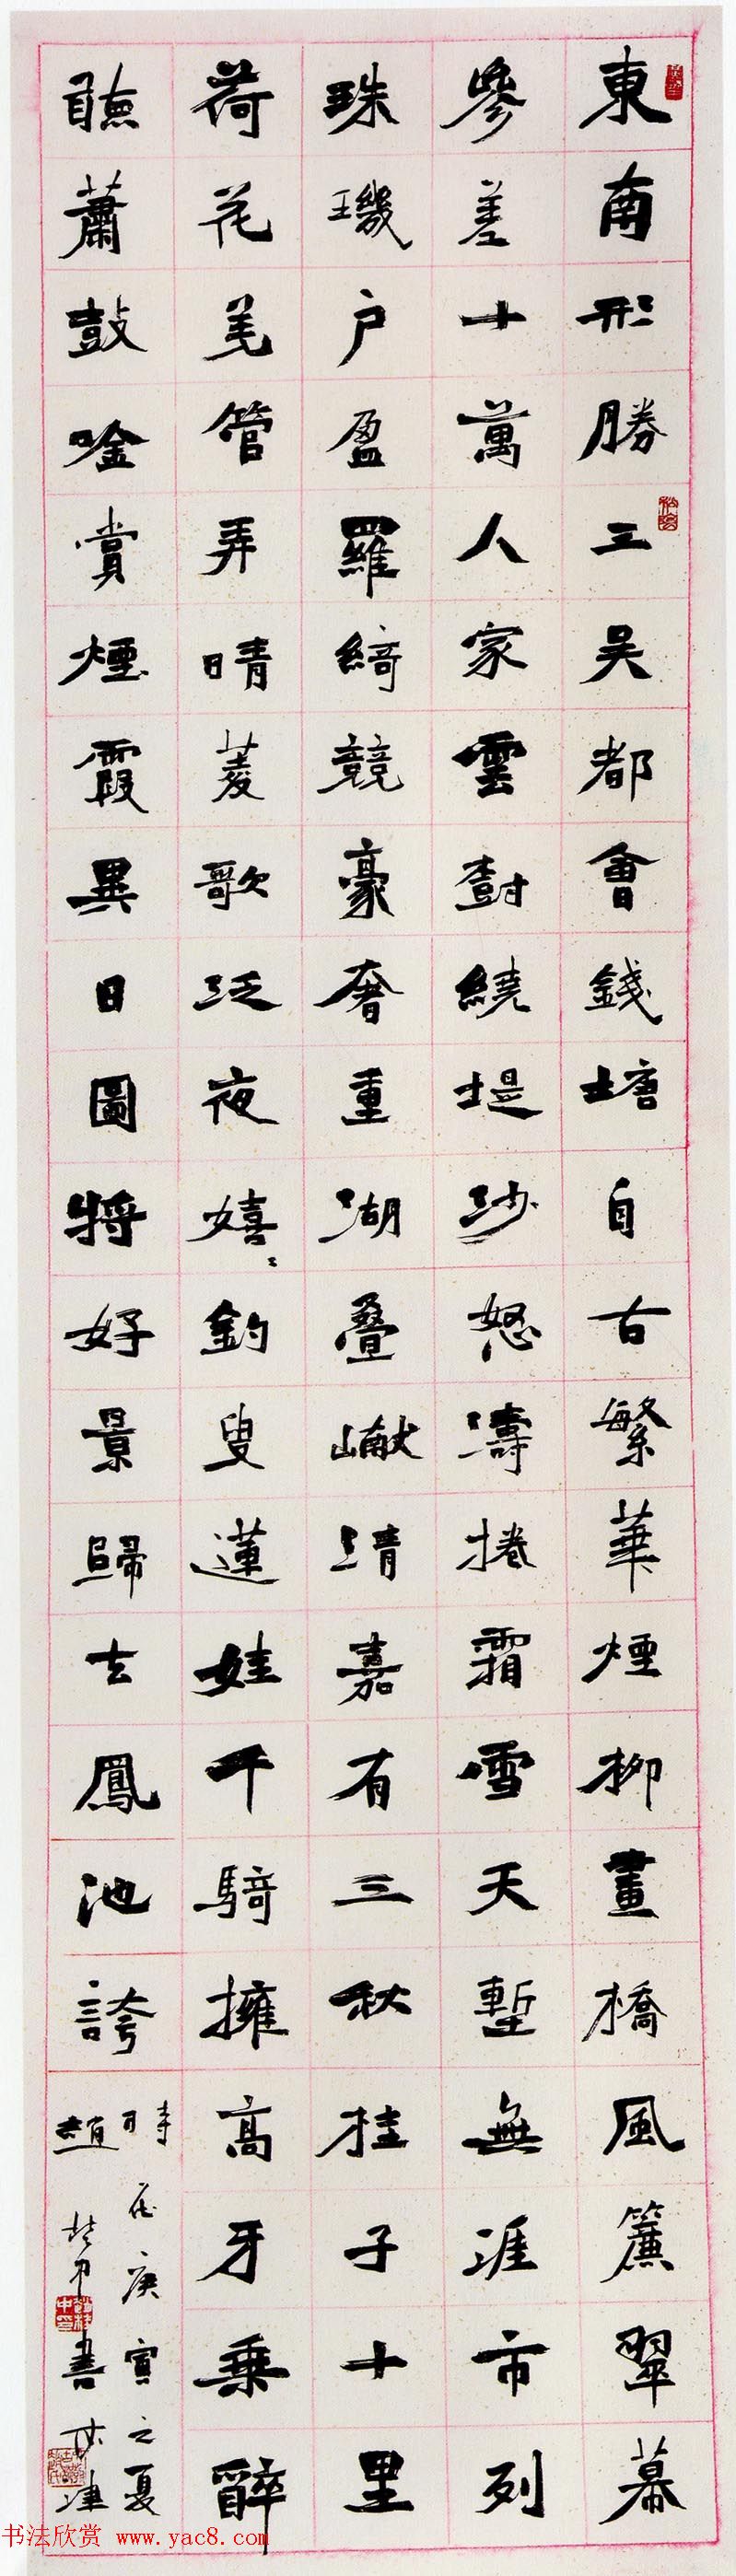 東南形勝三吳都會錢塘自古繁華煙柳畫橋風簾翠幕
參差十萬人家雲樹繞堤沙怒濤捲霜雪天塹無涯市列
珠璣戶盈羅綺競豪奢重湖疊巘清嘉有三秋桂子十里
荷花羌管弄晴菱歌泛夜嬉嬉釣叟蓮娃千騎擁高牙乘醉
聽蕭鼓唫賞煙霞異日圖將好景歸去鳳池誇
時在庚寅之夏
書法欣賞 www.yac8.com